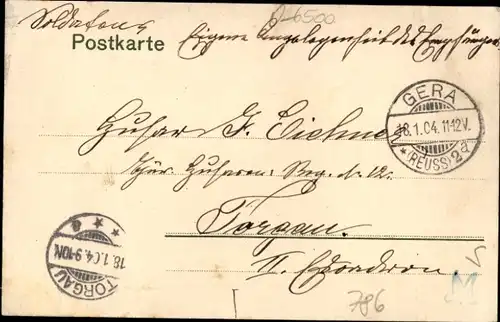 Soldaten
Eigene Angelegenheit des Empfängers
Postkarte
O-6500
GERA
18.1.04.11-12V.
* (REUSS) 2a
Husar J. Eichner
Thür. Husaren Reg. N. 12.
Torgau.
II. Escadron.
TORGAU
18.1.04.9-10N.
* * e
M
786